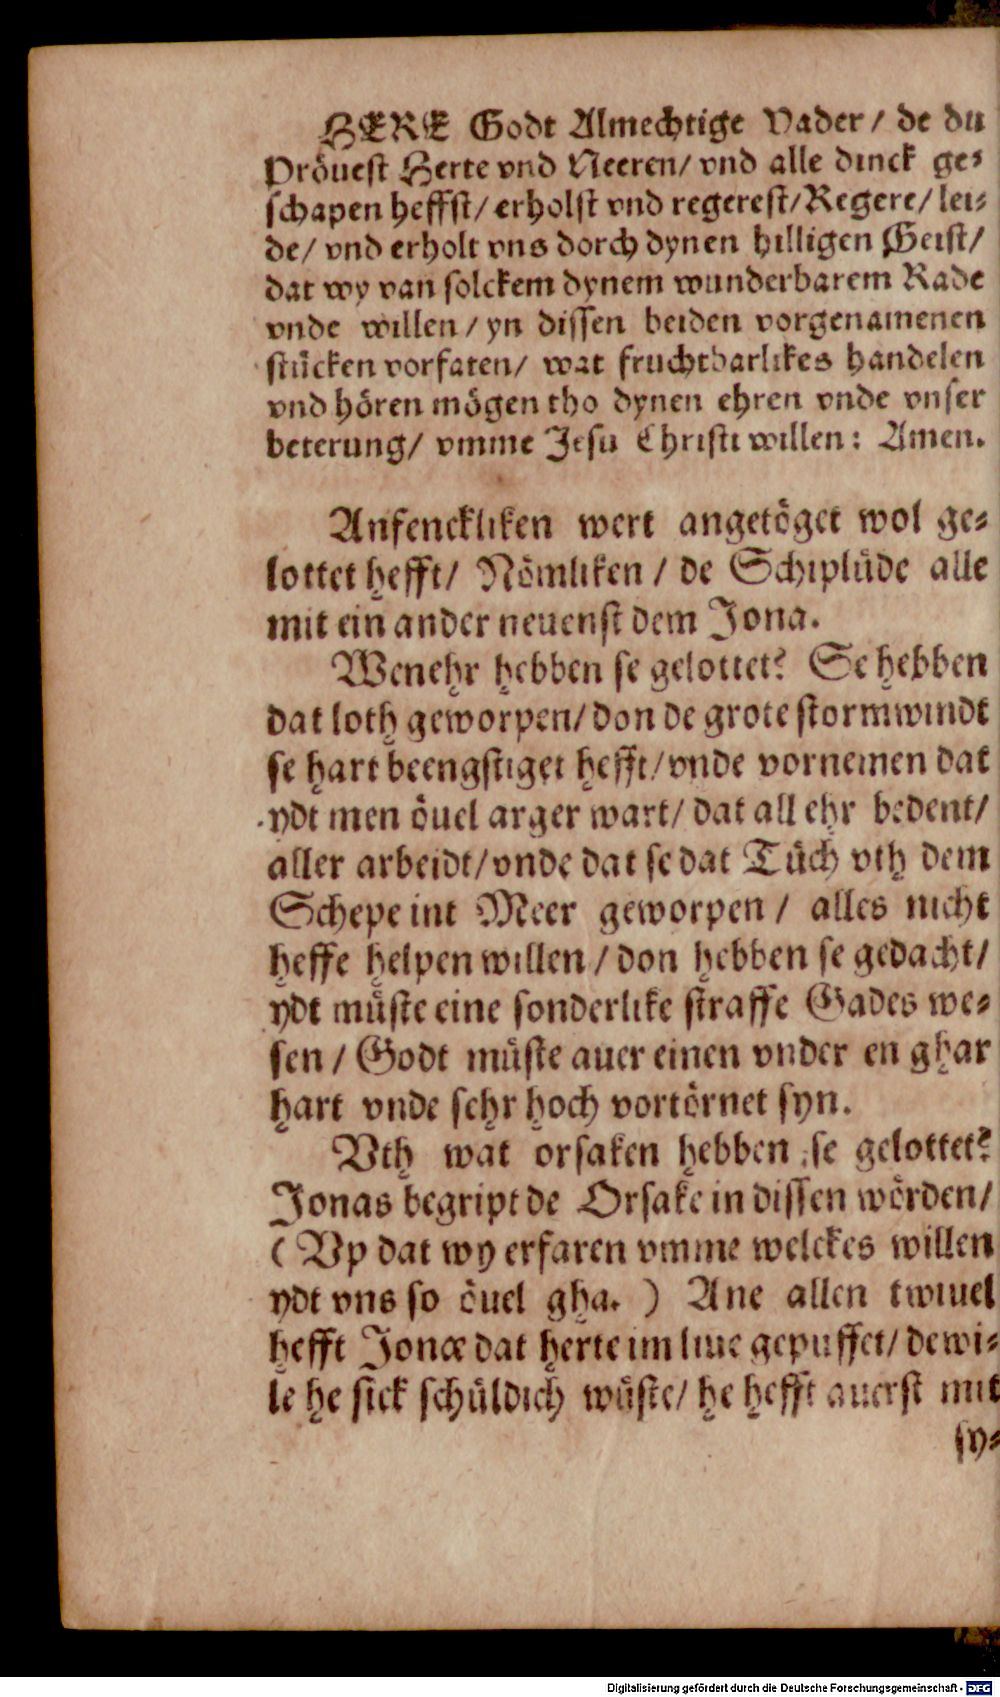 HERE Godt Almechtige Vader / de du
Pröuest Herte vnd Neeren/ vnd alle dinck ge⸗
schapen heffst/ erholst vnd regerest/ Regere/ lei⸗
de/ vnd erholt vns dorch dynen hilligen Geist/
dat wy van solckem dynem wunderbarem Rade
vnde willen / yn dissen beiden vorgenamenen
stücken vorfaten/ wat fruchtbarlikes handelen
vnd hören mögen tho dynen ehren vnde vnser
beterung/ vmme Jesu Christi willen: Amen.
Anfenckliken wert angetöget wol ge⸗
lottet hefft/ Nömliken / de Schiplüde alle
mit ein ander neuenst dem Jona.
Wenehr hebben se gelottet? Se hebben
dat loth geworpen/ don de grote stormwindt
se hart beengstiget hefft/ vnde vornemen dat
ydt men öuel arger wart/ dat all ehr bedent/
aller arbeidt/ vnde dat se dat Tüch vth dem
Schepe int Meer geworpen / alles nicht
heffe helpen willen / don hebben se gedacht/
ydt müste eine sonderlike straffe Gades we⸗
sen / Godt müste auer einen vnder en ghar
hart vnde sehr hoch vortörnet syn.
Vth wat orsaken hebben se gelottet?
Jonas begript de Orsake in dissen wörden/
( Vp dat wy erfaren vmme welckes willen
ydt vns so öuel gha. ) Ane allen twiuel
hefft Jonæ dat herte im liue gepuffet/ dewi⸗
le he sick schüldich wüste/ he hefft auerst mit
sy⸗
Digitalisierung gefördert durch die Deutsche Forschungsgemeinschaft - DFG